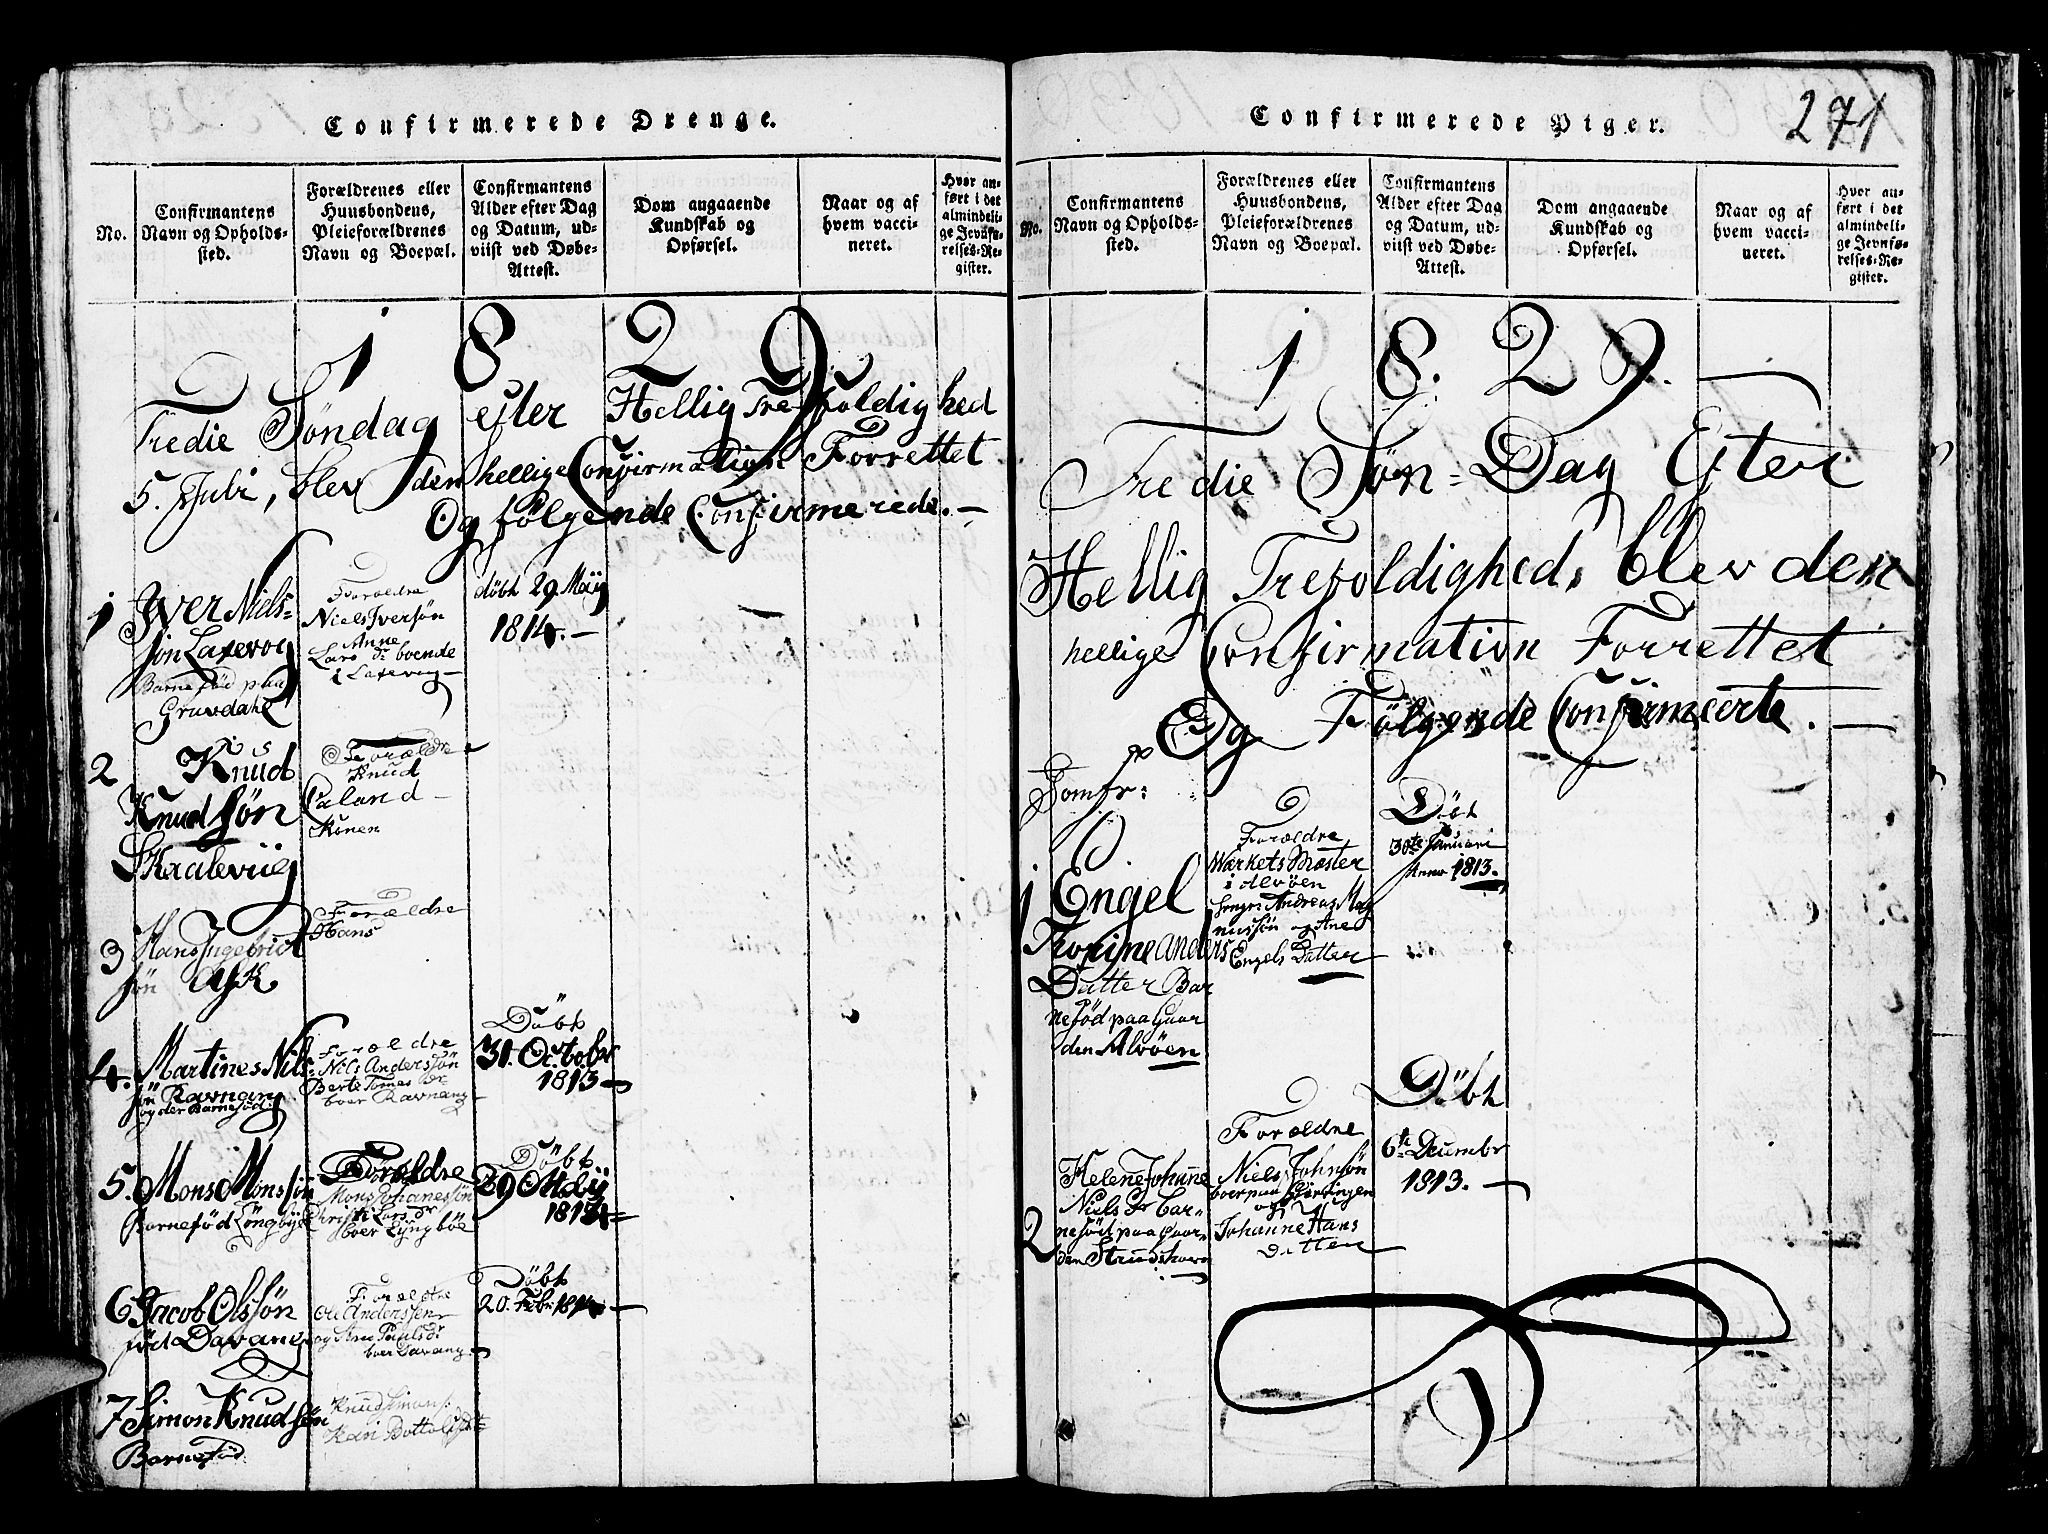 Confirmerede Drenge.
No.
Confirmantens
Navn og Opholds-
sted.
Forældrenes eller
Huusbondens,
Pleieforældrenes
Navn og Boepæl.
Confirmantens
Alder efter Dag
og Datum, ud-
viist ved Døbe-
Attest.
Dom angaaende
Kundskab og
Opførsel.
Naar og af
hvem vacci-
neret.
Hvor an-
ført i det
almindeli-
ge Jevnfø-
relses-Re-
gister.
1829
Tredie Søndag efter Hellig Trefoldighed
5. Juli, blev den hellige Confirmation Forrettet
Og følgende Confirmerede.
1
Iver Niels-
søn
Barnefød paa
Gravdahl
Forældre
Niels Iversøn
Anne
Lars Dr boende
i
døbt 29 Maij
1814.
2
Knud
Knudsøn
Forældre
Knud
Konen
3
Hans
søn Ask
Forældre
Hans
4. Martines Nils-
søn Ravnang
og der Barnefød
Forældre
Nils Anderssøn
Berte Tomes Dr
boer Ravnang
Döbt
31. Octobr
1813
5. Mons Monssøn
Barnefød
Forældre
Mons Johanessøn
Lars Dr
boer Lyngböe
Döbt
29 Maij
1814
6 Jacob Olssøn
fød Davang
Forældre
Ole Anderssen
og Ane Pauls Dr
boer Davang
Döbt
20. Feb: 1814
7 Simon Knudsøn
Barnefød
Knud Simons:
Kari
Confirmerede Piger.
271
No.
Confirmantens
Navn og Opholds-
sted.
Forældrenes eller
Huusbondens,
Pleieforældrenes
Navn og Boepæl.
Confirmantens
Alder efter Dag
og Datum, ud-
viist ved Døbe-
Attest.
Dom angaaende
Kundskab og
Opførsel.
Naar og af
hvem vacci-
neret.
Hvor an-
ført i det
almindeli-
ge Jevnfø-
relses-Re-
gister.
18.29.
Tredie Søn-Dag Efter
Hellig Trefoldighed, blev den
hellige Confirmation Forrettet
Og Følgende Confirmeerte.
Jomfr:
1 Engel
Anders
Datter Bar
nefød paa Gaar
den Alvöen
Forældre
Værkets Mester
i Alvöen
Andreas Mag
nussön og Ane
Engels Datter
Döbt
30te Januari
Anno 1813.
2
Helene Johanne
Niels Dr bar-
nefød paa Gaar-
den
Forældre
Niels Johnsön
boer paa
og
Johanne Hans
Datter
Döbt
6te Decembr
1813.